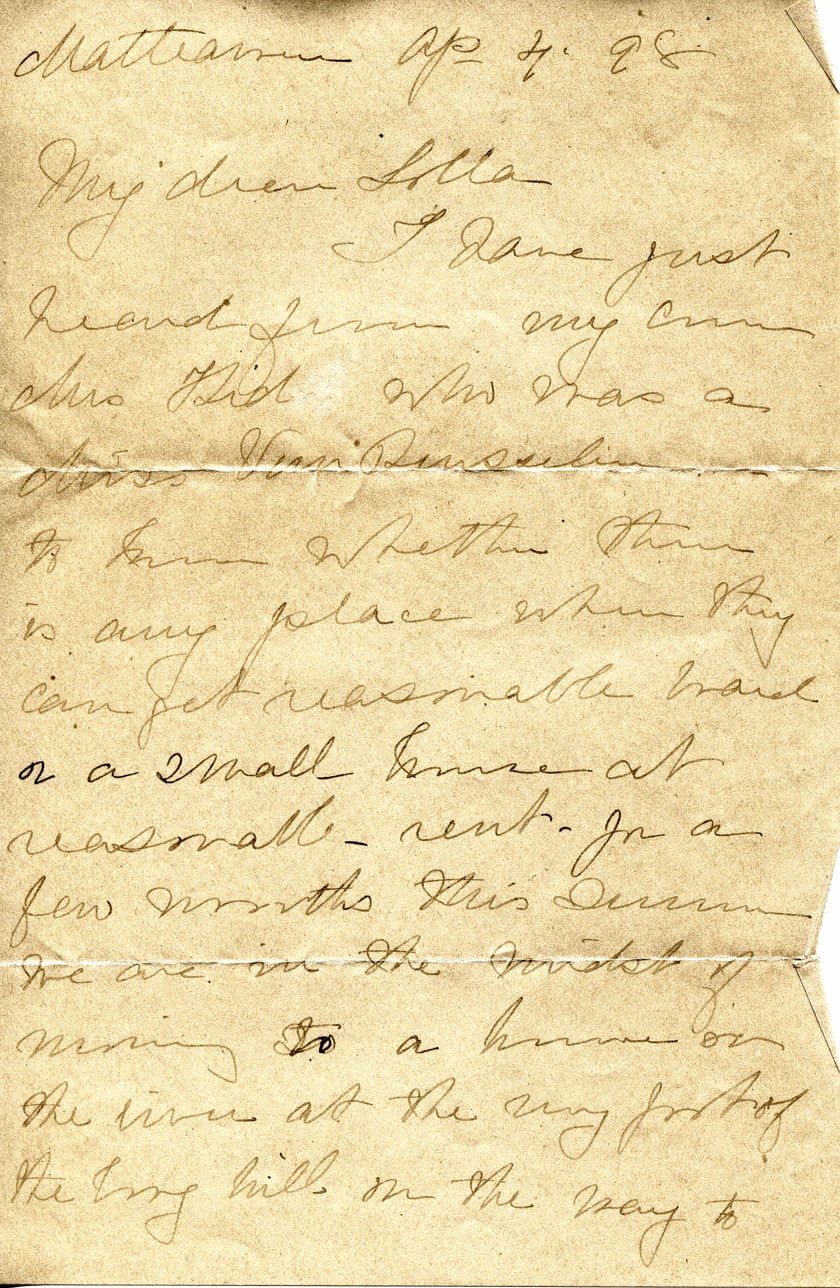 Matteawan Ap 4. 98
My dear Lolla
I have just
heard from my
Mrs Kid who was a
Miss Van Rensselaer
to know whether there
is any place where they
can get reasonable board
or a small house at
reasonable rent - for a
few months this summer
we are in the midst of
moving to a house on
the river at the very foot of
the long hill on the way to